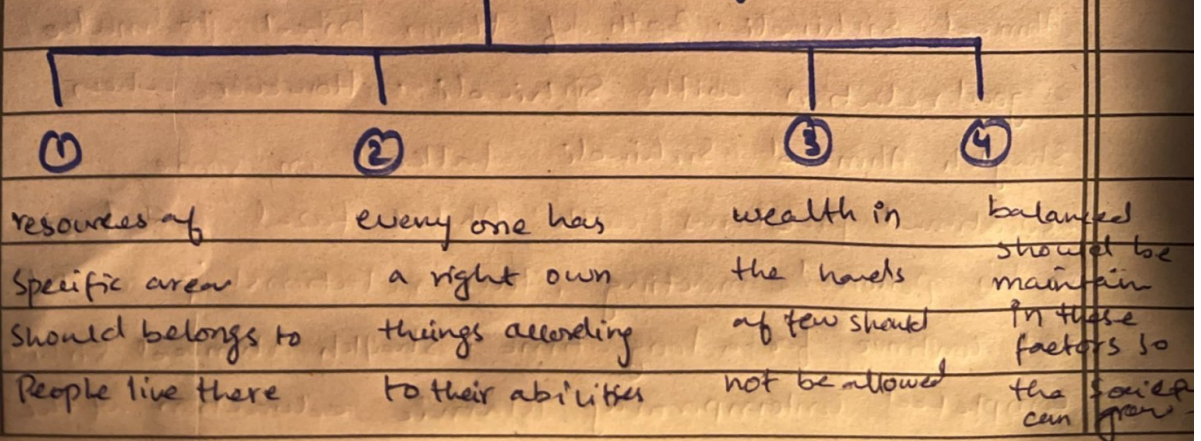 1
resources of
specific area
should belongs to
People live there
2
every one has
a right own
things according
to their abilities
3
wealth in
the hands
of few should
not be allowed
4
balanced
should be
maintain
in these
factors so
the society
can grow.